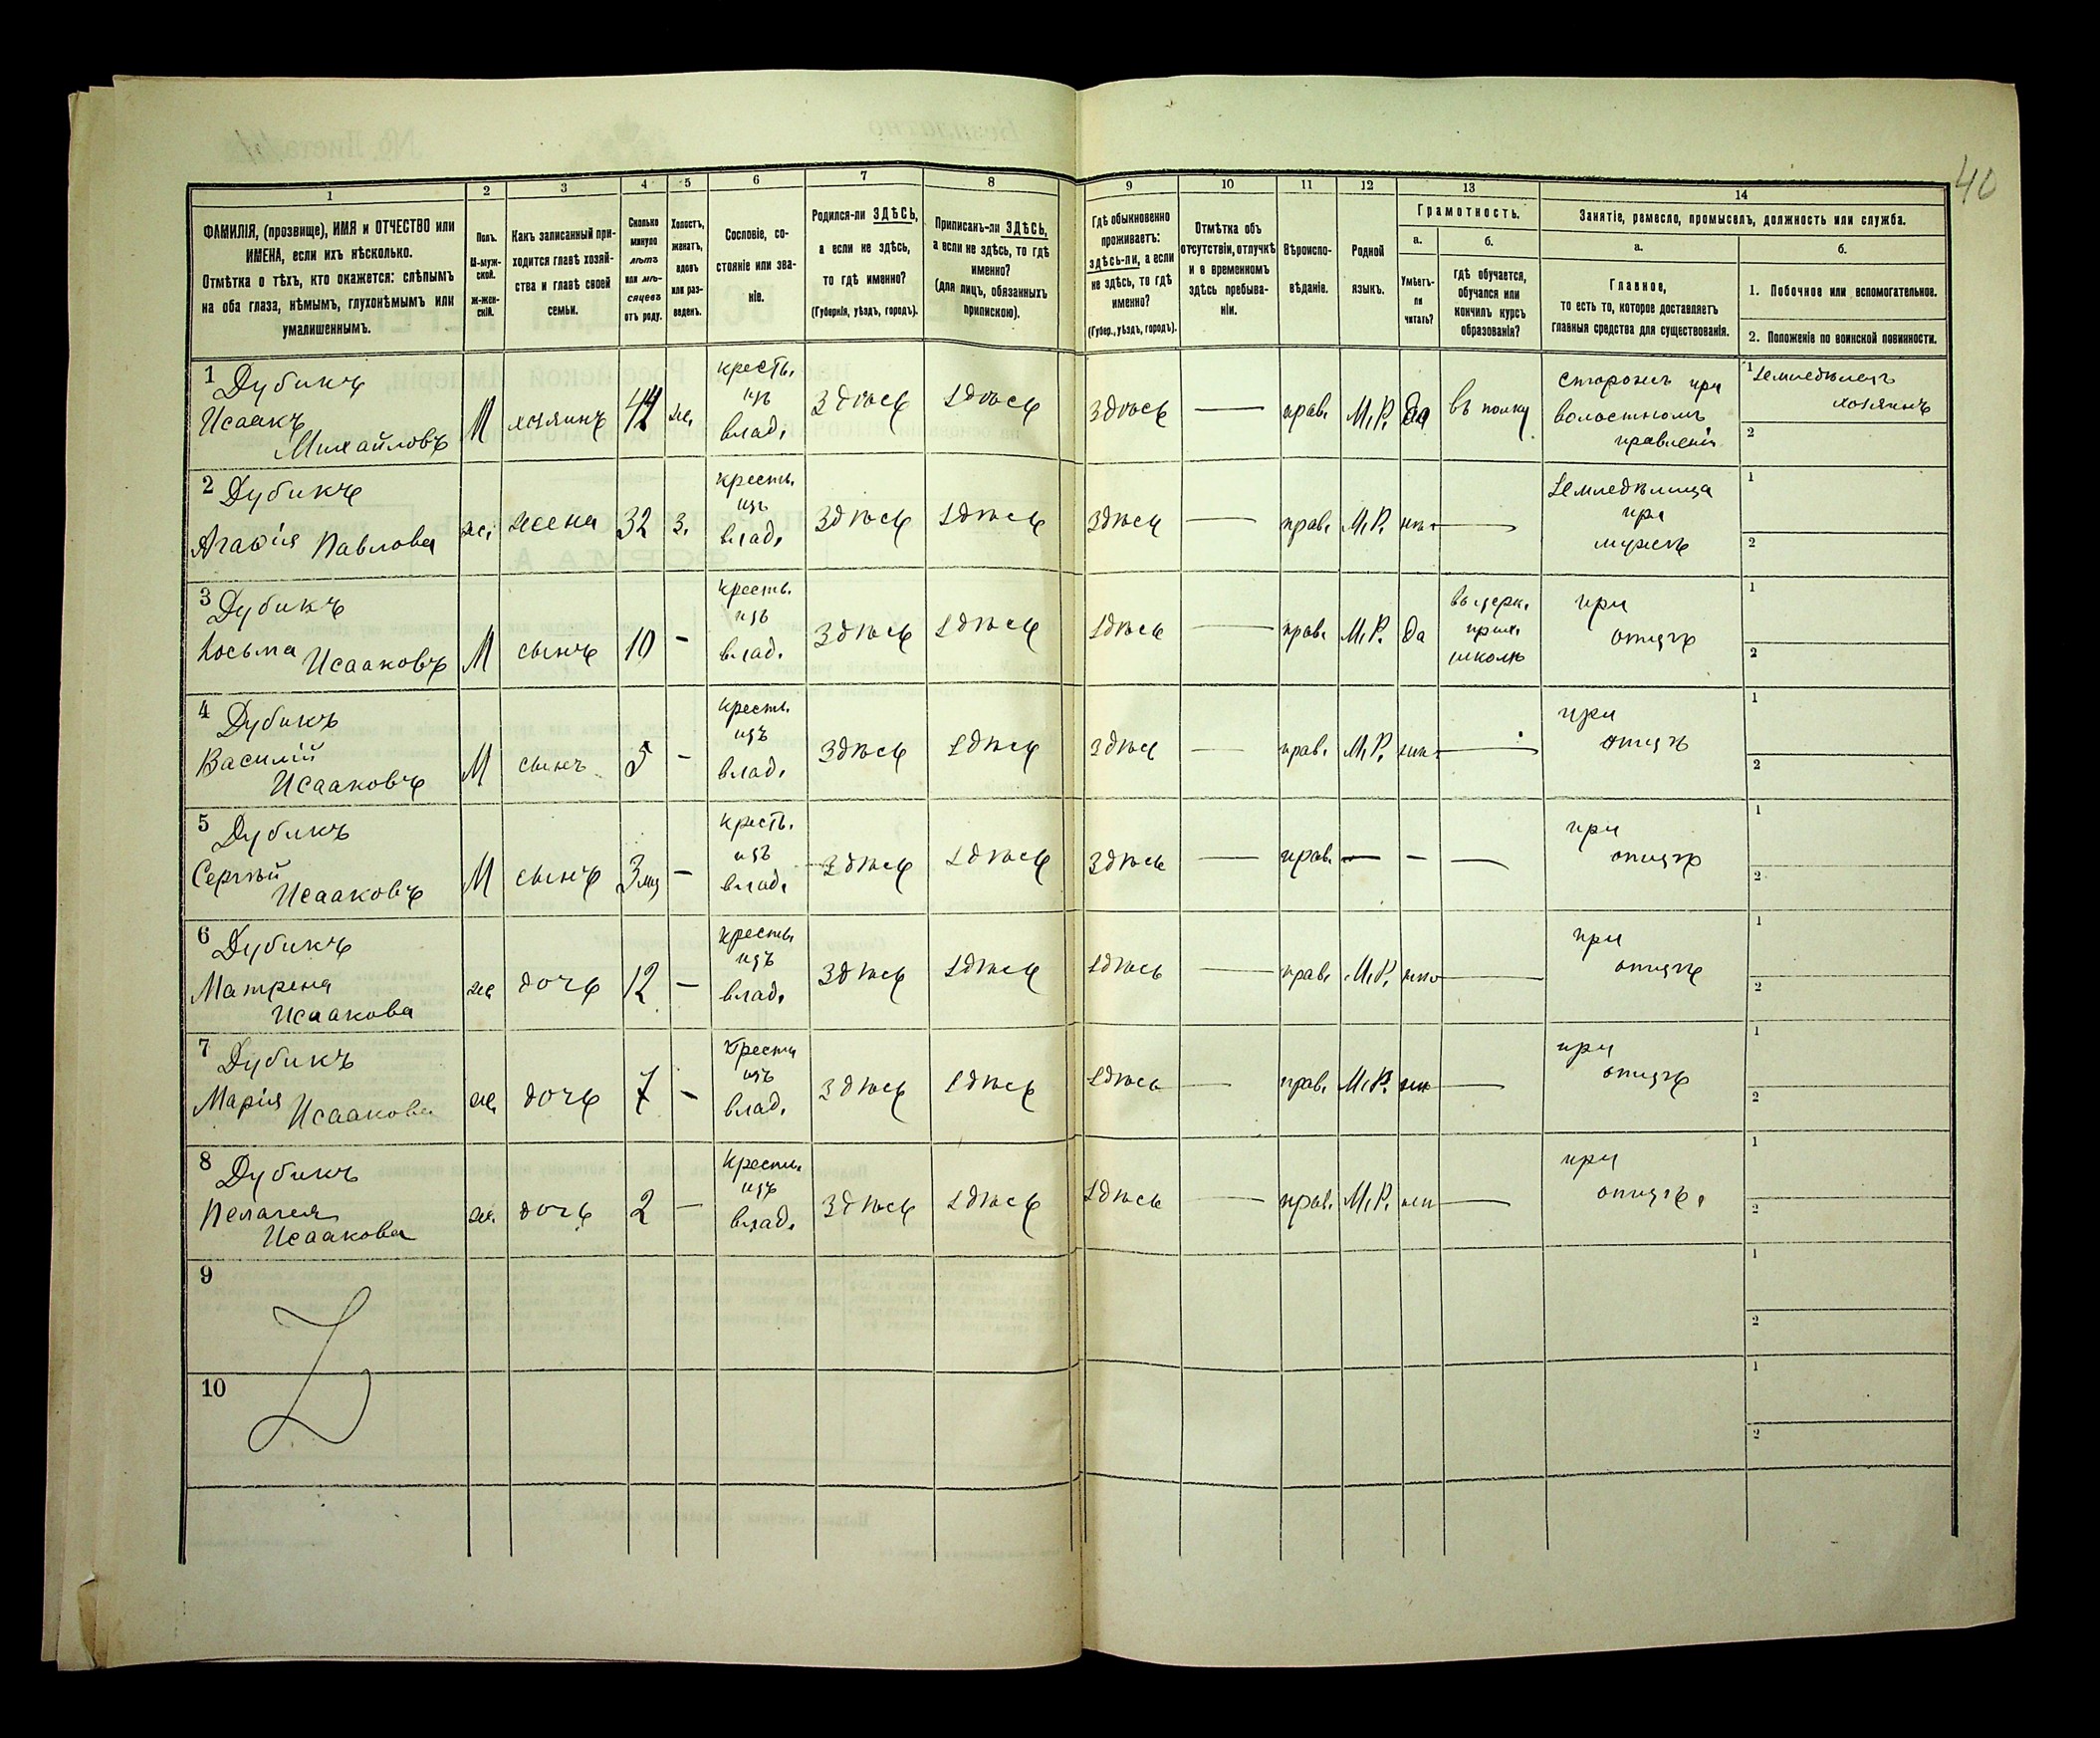 40
1 2 3 4 5 6 7 8 9 10 11 12 13 14
ФАМИЛІЯ, (прозвище), ИМЯ и ОТЧЕСТВО или
ИМЕНА, если ихъ нѣсколько.
Отмѣтка о тѣхъ, кто окажется: слѣпымъ
на оба глаза, нѣмымъ, глухонѣмымъ или
умалишеннымъ.
Полъ.
М-муж-
ской.
ж-жен-
скій.
Какъ записанный при-
ходится главѣ хозяй-
ства и главѣ своей
семьи.
Сколько
минуло
лѣтъ
или мѣ-
сяцевъ
отъ роду.
Холостъ,
женатъ,
вдовъ
или раз-
веденъ.
Сословіе, со-
стояніе или зва-
ніе.
Родился-ли ЗДѢСЬ,
а если не здѣсь,
то гдѣ именно?
(Губернія, уѣздъ, городъ).
Приписанъ-ли ЗДѢСЬ,
а если не здѣсь, то гдѣ
именно?
(для лицъ, обязанныхъ
припискою).
Гдѣ обыкновенно
проживаетъ:
здѣсь-ли, а если
не здѣсь, то гдѣ
именно?
(Губер., уѣздъ, городъ).
Отмѣтка объ
отсутствіи, отлучкѣ
и о временномъ
здѣсь пребыва-
ніи.
Вѣроиспо-
вѣданіе.
Родной
языкъ.
Грамотность.
а.
Умѣетъ-
ли
читать?
б.
гдѣ обучается,
обучался или
кончилъ курсъ
образованія?
Занятіе, ремесло, промыселъ, должность или служба.
а.
Главное,
то есть то, которое доставляетъ
главныя средства для существованія.
б.
1. Побочное или вспомогательное.
2. Положеніе по воинской повинности.
1 Дубикъ
Исаакъ
Михайловъ
М хозяинъ 44 же.
кресть.
изъ
влад.
Здѣсь Здѣсь Здѣсь — прав. М.Р. Да въ полку
сторожъ при
волостномъ
правленіи
1 Земледѣлецъ
хозяинъ
2
2 Дубикъ
Агафія Павлова
же. жена 32 з.
кресть.
изъ
влад.
Здѣсь Здѣсь Здѣсь — прав. М.Р. —
Земледѣлица
при
мужѣ
1
2
3 Дубикъ
Косьма
Исааковъ
М сынъ 10 -
кресть.
изъ
влад.
Здѣсь Здѣсь Здѣсь — прав. М.Р. да
въ церк.
прих.
школѣ
при
отцѣ
1
2
4 Дубикъ
Василій
Исааковъ
М сынъ 5 -
кресть.
изъ
влад.
Здѣсь Здѣсь Здѣсь — прав. М.Р. —
при
отцѣ
1
2
5 Дубикъ
Сергѣй
Исааковъ
М сынъ 3 мц —
кресть.
изъ
влад.
Здѣсь Здѣсь Здѣсь — прав. — - —
при
отцѣ
1
2
6 Дубикъ
Матрена
Исаакова
же дочь 12 —
кресть.
изъ
влад.
Здѣсь Здѣсь Здѣсь — прав. М.Р. —
при
отцѣ
1
2
7 Дубикъ
Марія Исаакова
же. дочь 7 -
Кресть
изъ
влад.
Здѣсь Здѣсь Здѣсь — прав. М.Р. —
при
отцѣ
1
2
8 Дубикъ
Пелагея
Исаакова
же. дочь 2 —
Кресть.
изъ
влад.
Здѣсь Здѣсь Здѣсь — прав. М.Р. —
при
отцѣ.
1
2
9
1
2
10
1
2